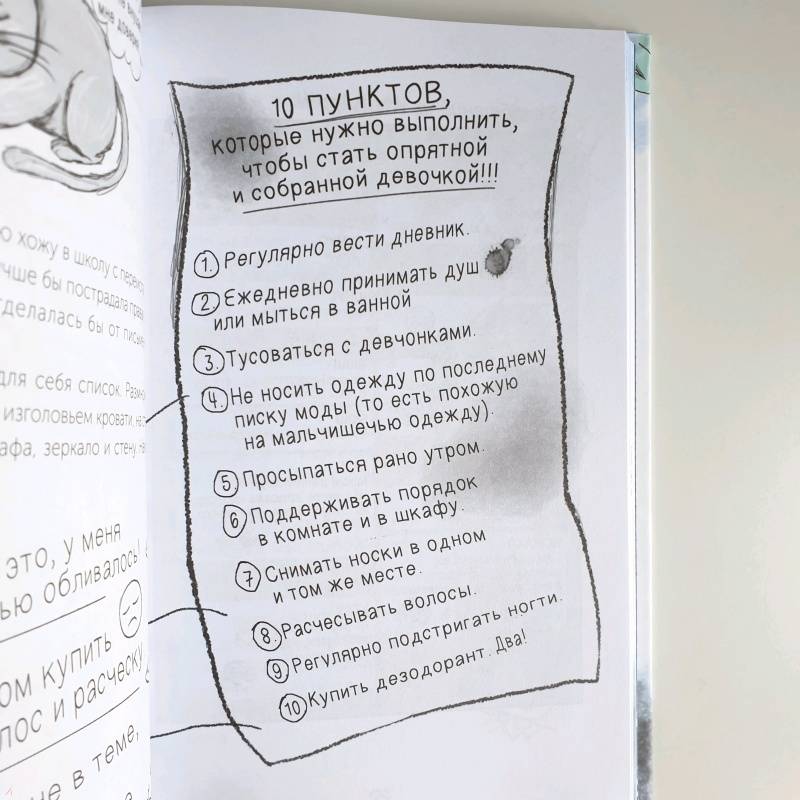 мне довер
ю хожу в школу с
учше бы пострадала
тделалась бы от
для себя список.
изголовьем кровати,
афа, зеркало и стену,
это, у меня
ью обливалось!
ом купить
лос и расческу
не в теме,
10 ПУНКТОВ,
которые нужно выполнить,
чтобы стать опрятной
и собранной девочкой!!!
1. Регулярно вести дневник.
2. Ежедневно принимать душ
или мыться в ванной
3. Тусоваться с девчонками.
4. Не носить одежду по последнему
писку моды (то есть похожую
на мальчишечью одежду).
5 Просыпаться рано утром.
6 Поддерживать порядок
в комнате и в шкафу.
7 Снимать носки в одном
и том же месте.
8. Расчесывать волосы.
9 Регулярно подстригать ногти.
10 Купить дезодорант. Два!